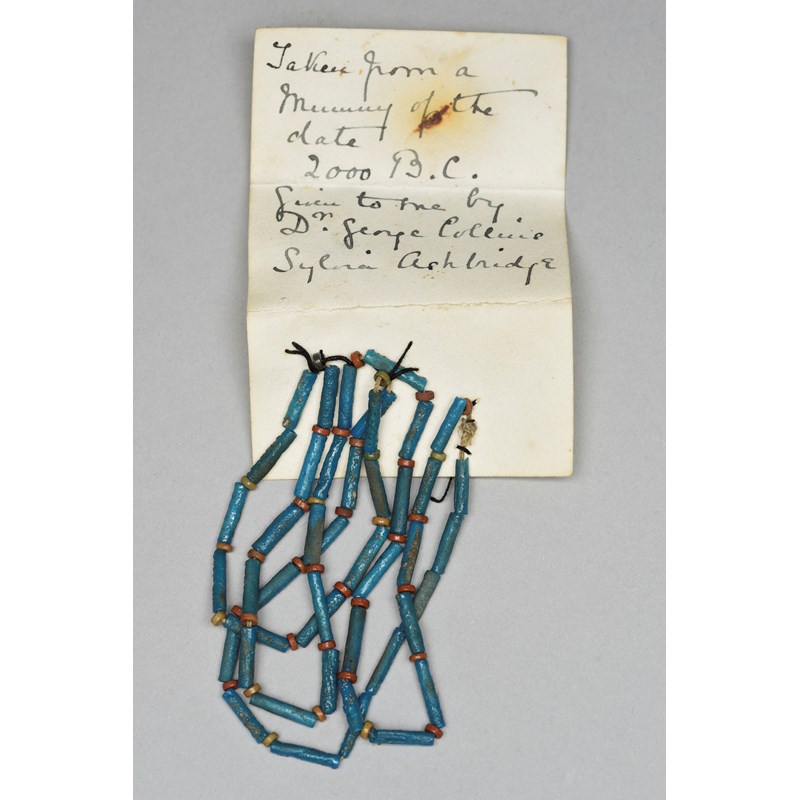 Taken from a
Mummy of the
date
2000 B.C.
Given to me by
Dr. George Collins
Sylvia Ashbridge